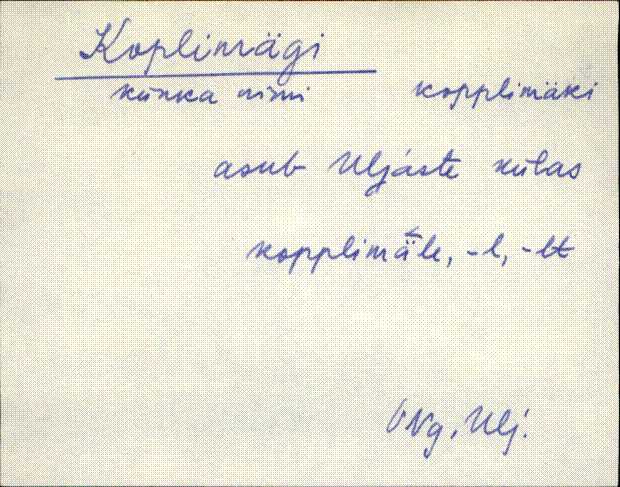 Koplimägi
künka nimi kopplimäki
asub Uljaste külas
kopplimä̆le, -l, -lt
VNg, Ulj.